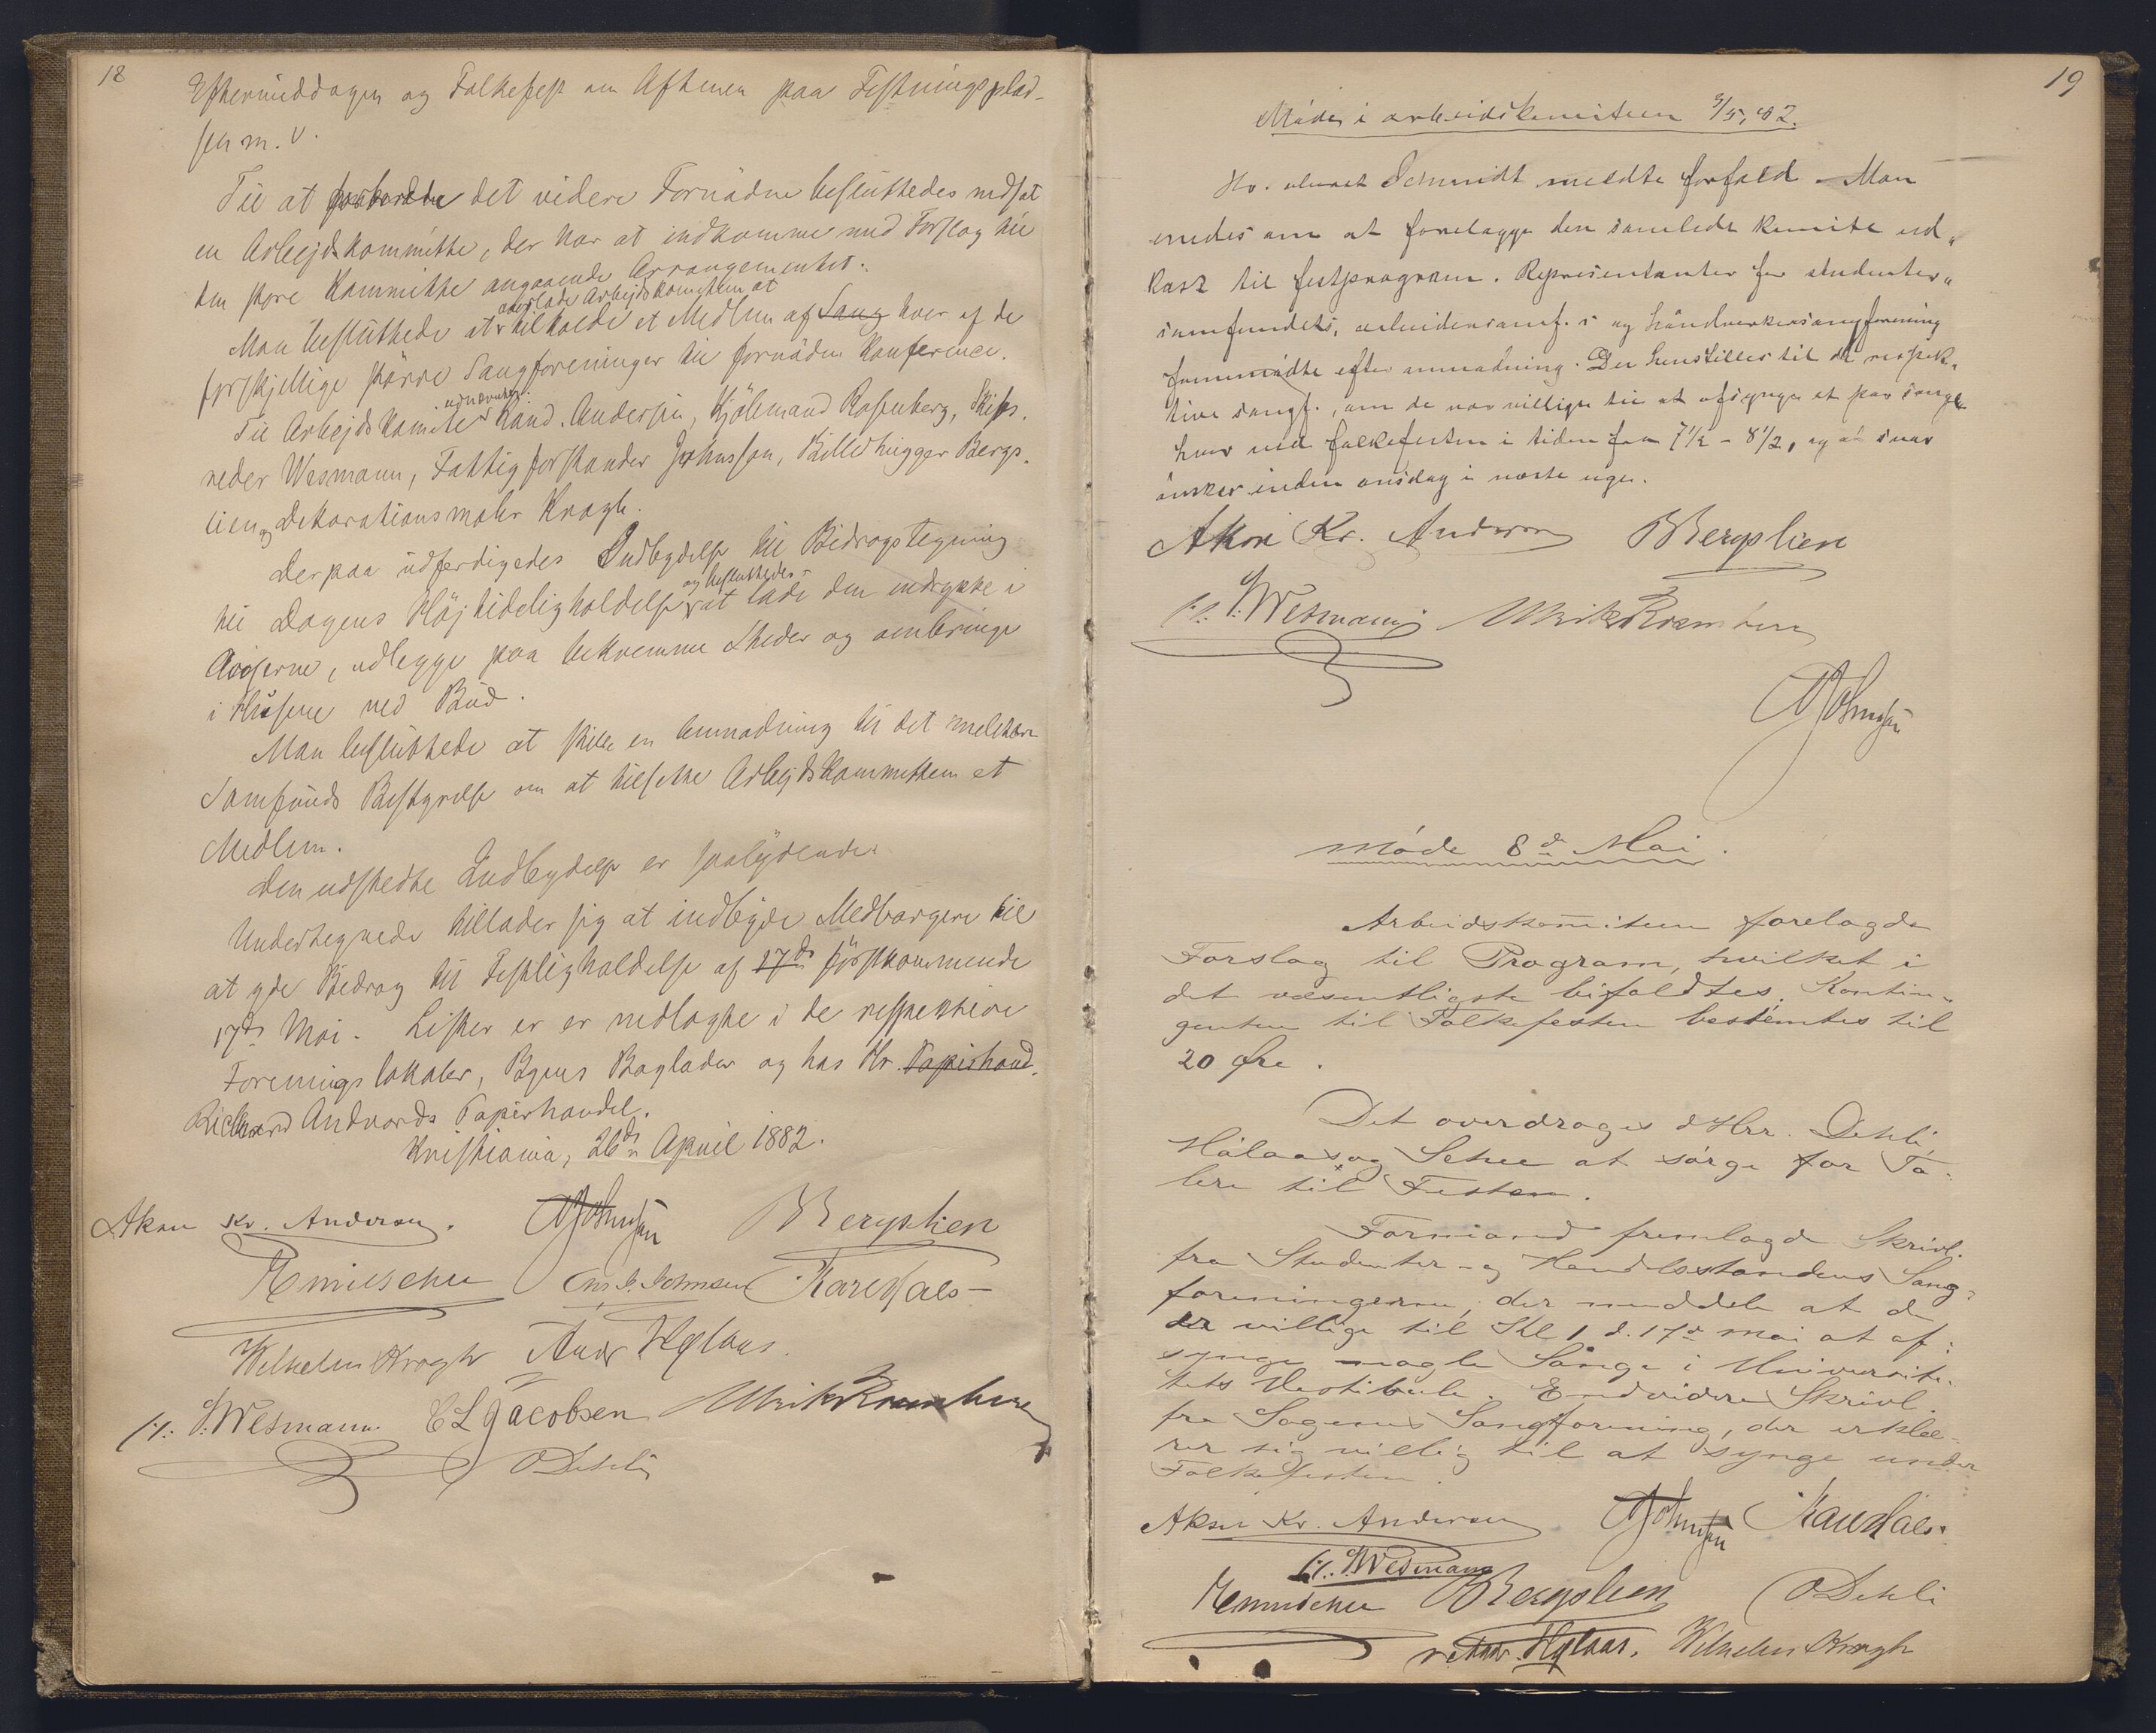 18
Eftermiddagen og Folkefest om Aftenen paa Festningsplad-
sen m. v.
Til at forberede det videre Fornødne besluttedes nedsat
en Arbejdskommitte, der har at indkomme med Forslag til
den store Kommitte angaaende Arrangementet.
overlade Arbejdskomiteen at
Man besluttede at tilkalde et Medlem af Sang hver af de
forskjellige større Sangforeninger til fornøden Konference.
udnævntes:
Til Arbejdskomite Kand. Andersen, Kjøbmand Rosenberg, Skibs-
reder Wesmann, Fattigforstander Johnsson, Billedhugger Bergs-
lien og Dekorationsmaler Krogh.
Derpaa udferdigedes Indbydelse til Bidragstegning
og besluttedes
til Dagens Højtideligholdelse at lade den indrykke i
Aviserne, udlegge paa bekvemme Steder og ombringe
i Husene ved Bud.
Man besluttede at stille en Anmodning til det militære
Samfunds Bestyrelse om at tilsette Arbejdskommitteen et
Medlem.
Den udstedte Indbydelse er saalydende:
Undertegnede tillader sig at indbyde Medborgere til
at yde Bidrag til Festligholdelse af 17de førstkommende
17de Mai. Lister er er nedlagte i de respektive
Foreningslokaler, Byens Boglader og hos Hr. Papirhand-
Richard Andvords Papirhandel.
Kristiania, 26de April 1882.
Aksu Kr. Andersen. O Johnsson B Bergslien
Emil Schee Chr. J. Johnsen Kare Hals
Wilhelm Krogh Andr Hølaas.
H. P. Wesmann C L Jacobsen Ulrik Rosenberg
O Dehli
19
Møde i arbeidskomiteen 3/5, 82.
Hr. Schmidt meldte forfald. Man
enedes om at forelægge den samlede komite ud-
kast til festprogram. Representanter for studenter-
samfundets, arbeidersamf.s og håndverkersangforening
fremmødte efter anmodning. Der henstilles til de respek-
tive sangf., om de var villige til at afsynge et par sange
hver ved folkefesten i tiden fra 7 1/2 - 8 1/2, og at svar
ønskes inden onsdag i næste uge.
Aksu Kr. Andersen B Bergslien
H. P. Wesmann Ulrik Rosenberg
O Johnsson
Møde 8de Mai.
Arbeidskomiteen forelagde
Forslag til Program, hvilket i
det væsentligste bifaldtes. Kontin-
genten til Folkefesten bestemtes til
20 Øre.
Det overdroges d'Hrr. Dehli,
Hölaas og Schee at sørge for Ta-
lere til Festen.
Formand fremlagde Skrivl.
fra Studenter- og Handelsstandens Sang-
foreningerne, der meddele at de
er villige til Kl 1 d. 17de Mai at af-
synge nogle Sange i Universite-
tets Vestibule. Endvidere Skrivl.
fra Sagenes Sangforening, der erklæ-
rer sig villig til at synge under
Folkefesten.
Aksu Kr. Andersen O Johnsson Kare Hals.
H. P. Wesmann
Emil Schee B Bergslien O Dehli
Andr. Hølaas. Wilhelm Krogh